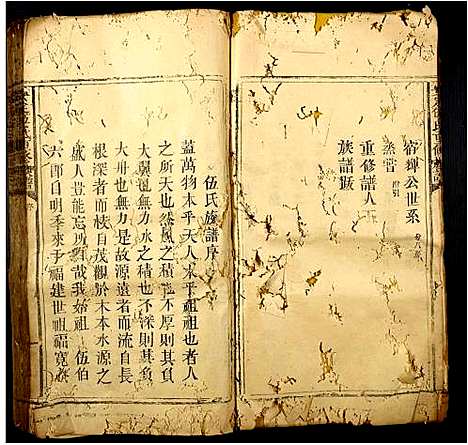 宿輝公世系
蒸嘗
重修譜人
族譜跋
伍氏族譜序
蓋萬物本乎天人本乎祖也者人
之所天也然風之積也不厚則其負
大翼也無力水之積也不深則其負
大舟也無力是故源遠者而流自長
根深者而枝自茂觀於木本水源之
盛人豈能忘所哉我始祖 伍伯
六郎自明季來于福建世祖福寬